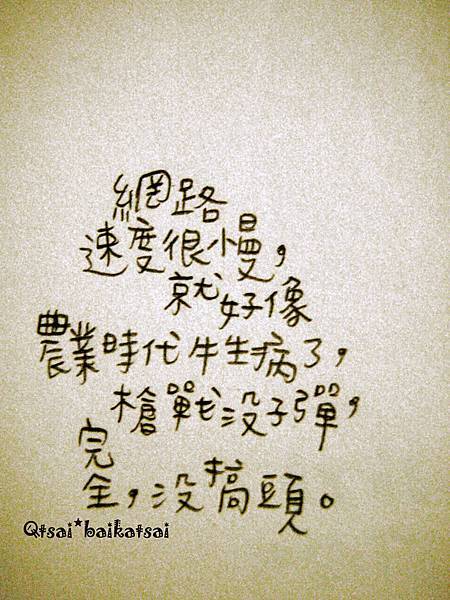 網路
速度很慢，
就好像
農業時代牛生病了，
槍戰沒子彈，
完
全，沒搞頭。
Qtsai*baikatsai